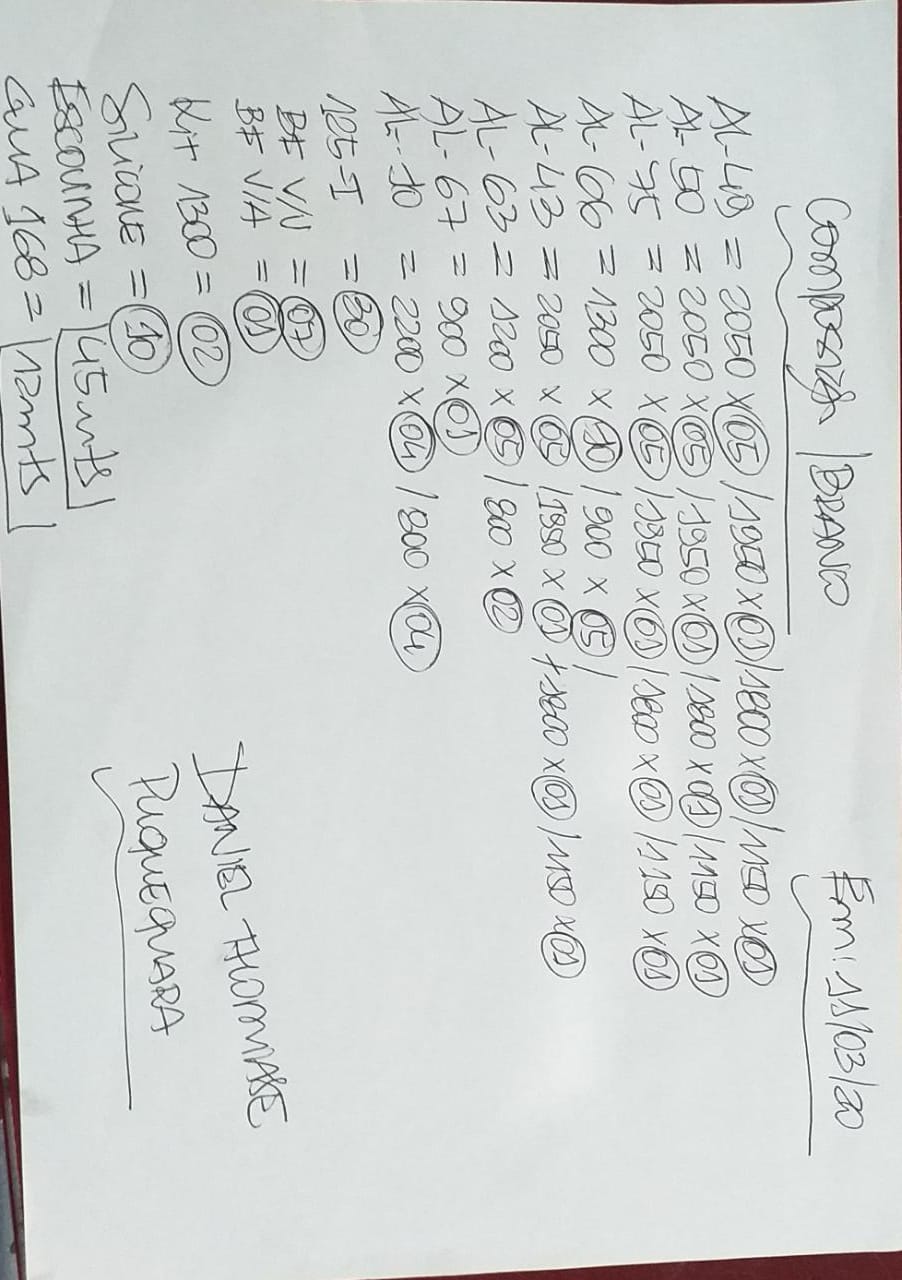 Composição / BRANCO Em: 11/03/20
AL-48 = 2050 x 05 / 1950 x 01 / 1800 x 01 / 1150 x 01
AL-50 = 2050 x 05 / 1950 x 01 / 1800 x 01 / 1150 x 01
AL-75 = 2050 x 05 / 1950 x 01 / 1800 x 01 / 1150 x 01
AL-66 = 1300 x 10 / 900 x 05 /
AL-43 = 2050 x 05 / 1950 x 01 + 1800 x 01 / 1150 x 01
AL-63 = 1200 x 05 / 800 x 02
AL-67 = 900 x 01
AL-70 = 2200 x 04 / 800 x 04
125-I = 30
BF V/N = 07
BF V/A = 01
Kit 1300 = 02
Silicone = 10
Escovinha = 45mts
GUIA 168 = 12mts
DANIEL
PUQUEQUARA